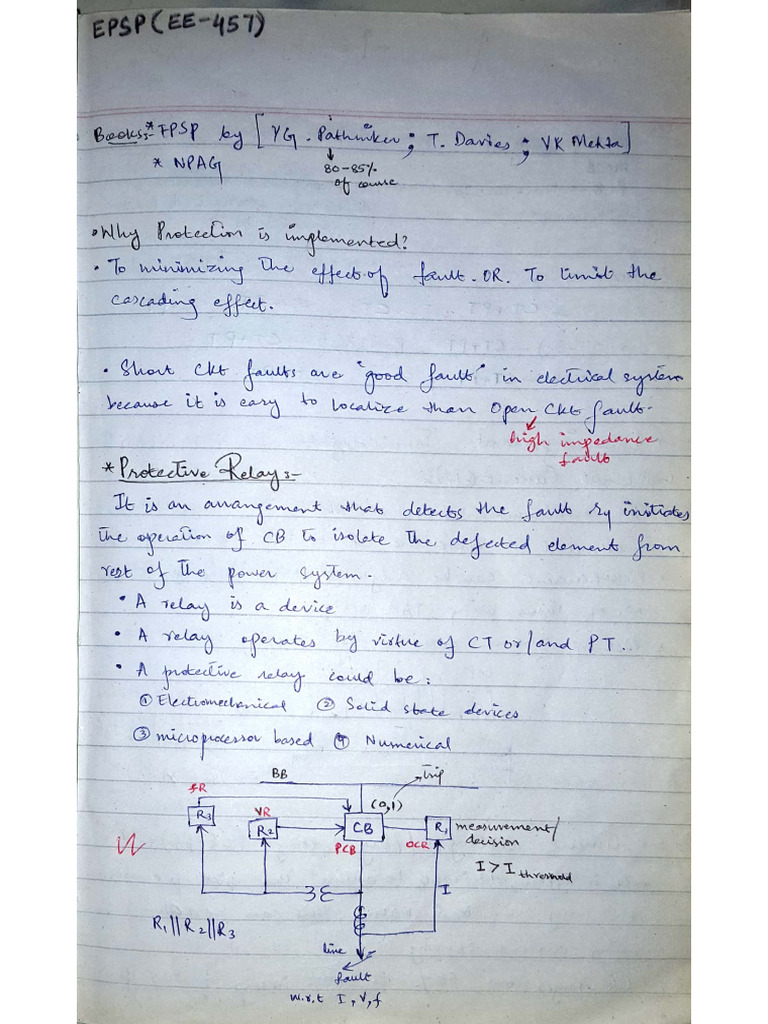 EPSP (EE-457)
Books:- * FPSP by [YG. Pathinker; T. Davies; VK Mehta]
* NPAG
80-85%
of course
• Why Protection is implemented?
• To minimizing the effect of fault. OR. To limit the
cascading effect.
• Short Ckt faults are "good fault" in electrical system
because it is easy to localize than Open Ckt fault.
high impedance
fault
* Protective Relays:-
It is an arrangement that detects the fault & initiates
the operation of CB to isolate the defected element from
rest of the power system.
• A relay is a device
• A relay operates by virtue of CT or/and PT.
• A protective relay could be:
① Electromechanical ② Solid state devices
③ microprocessor based ④ Numerical
BB
trip
fR
R3
VR
R2
(0,1)
CB
PCB
R1
OCR
measurement/
decision
I > I threshold
I
R1||R2||R3
line
fault
w.r.t I, V, f